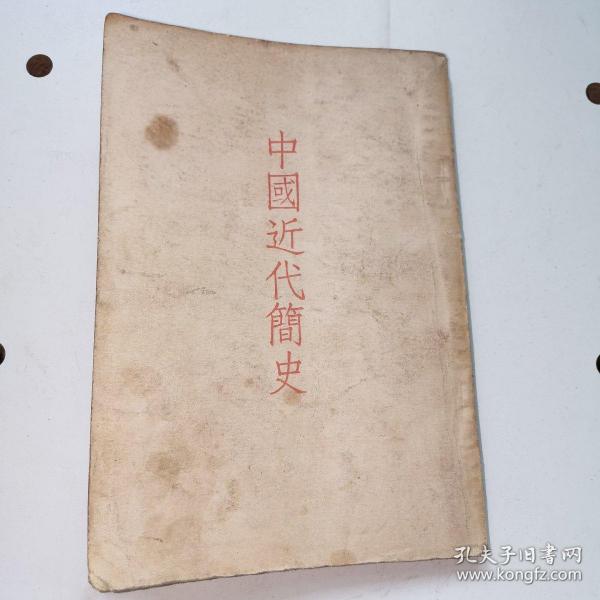 中國近代簡史
孔夫子旧书网
www.kongfz.com